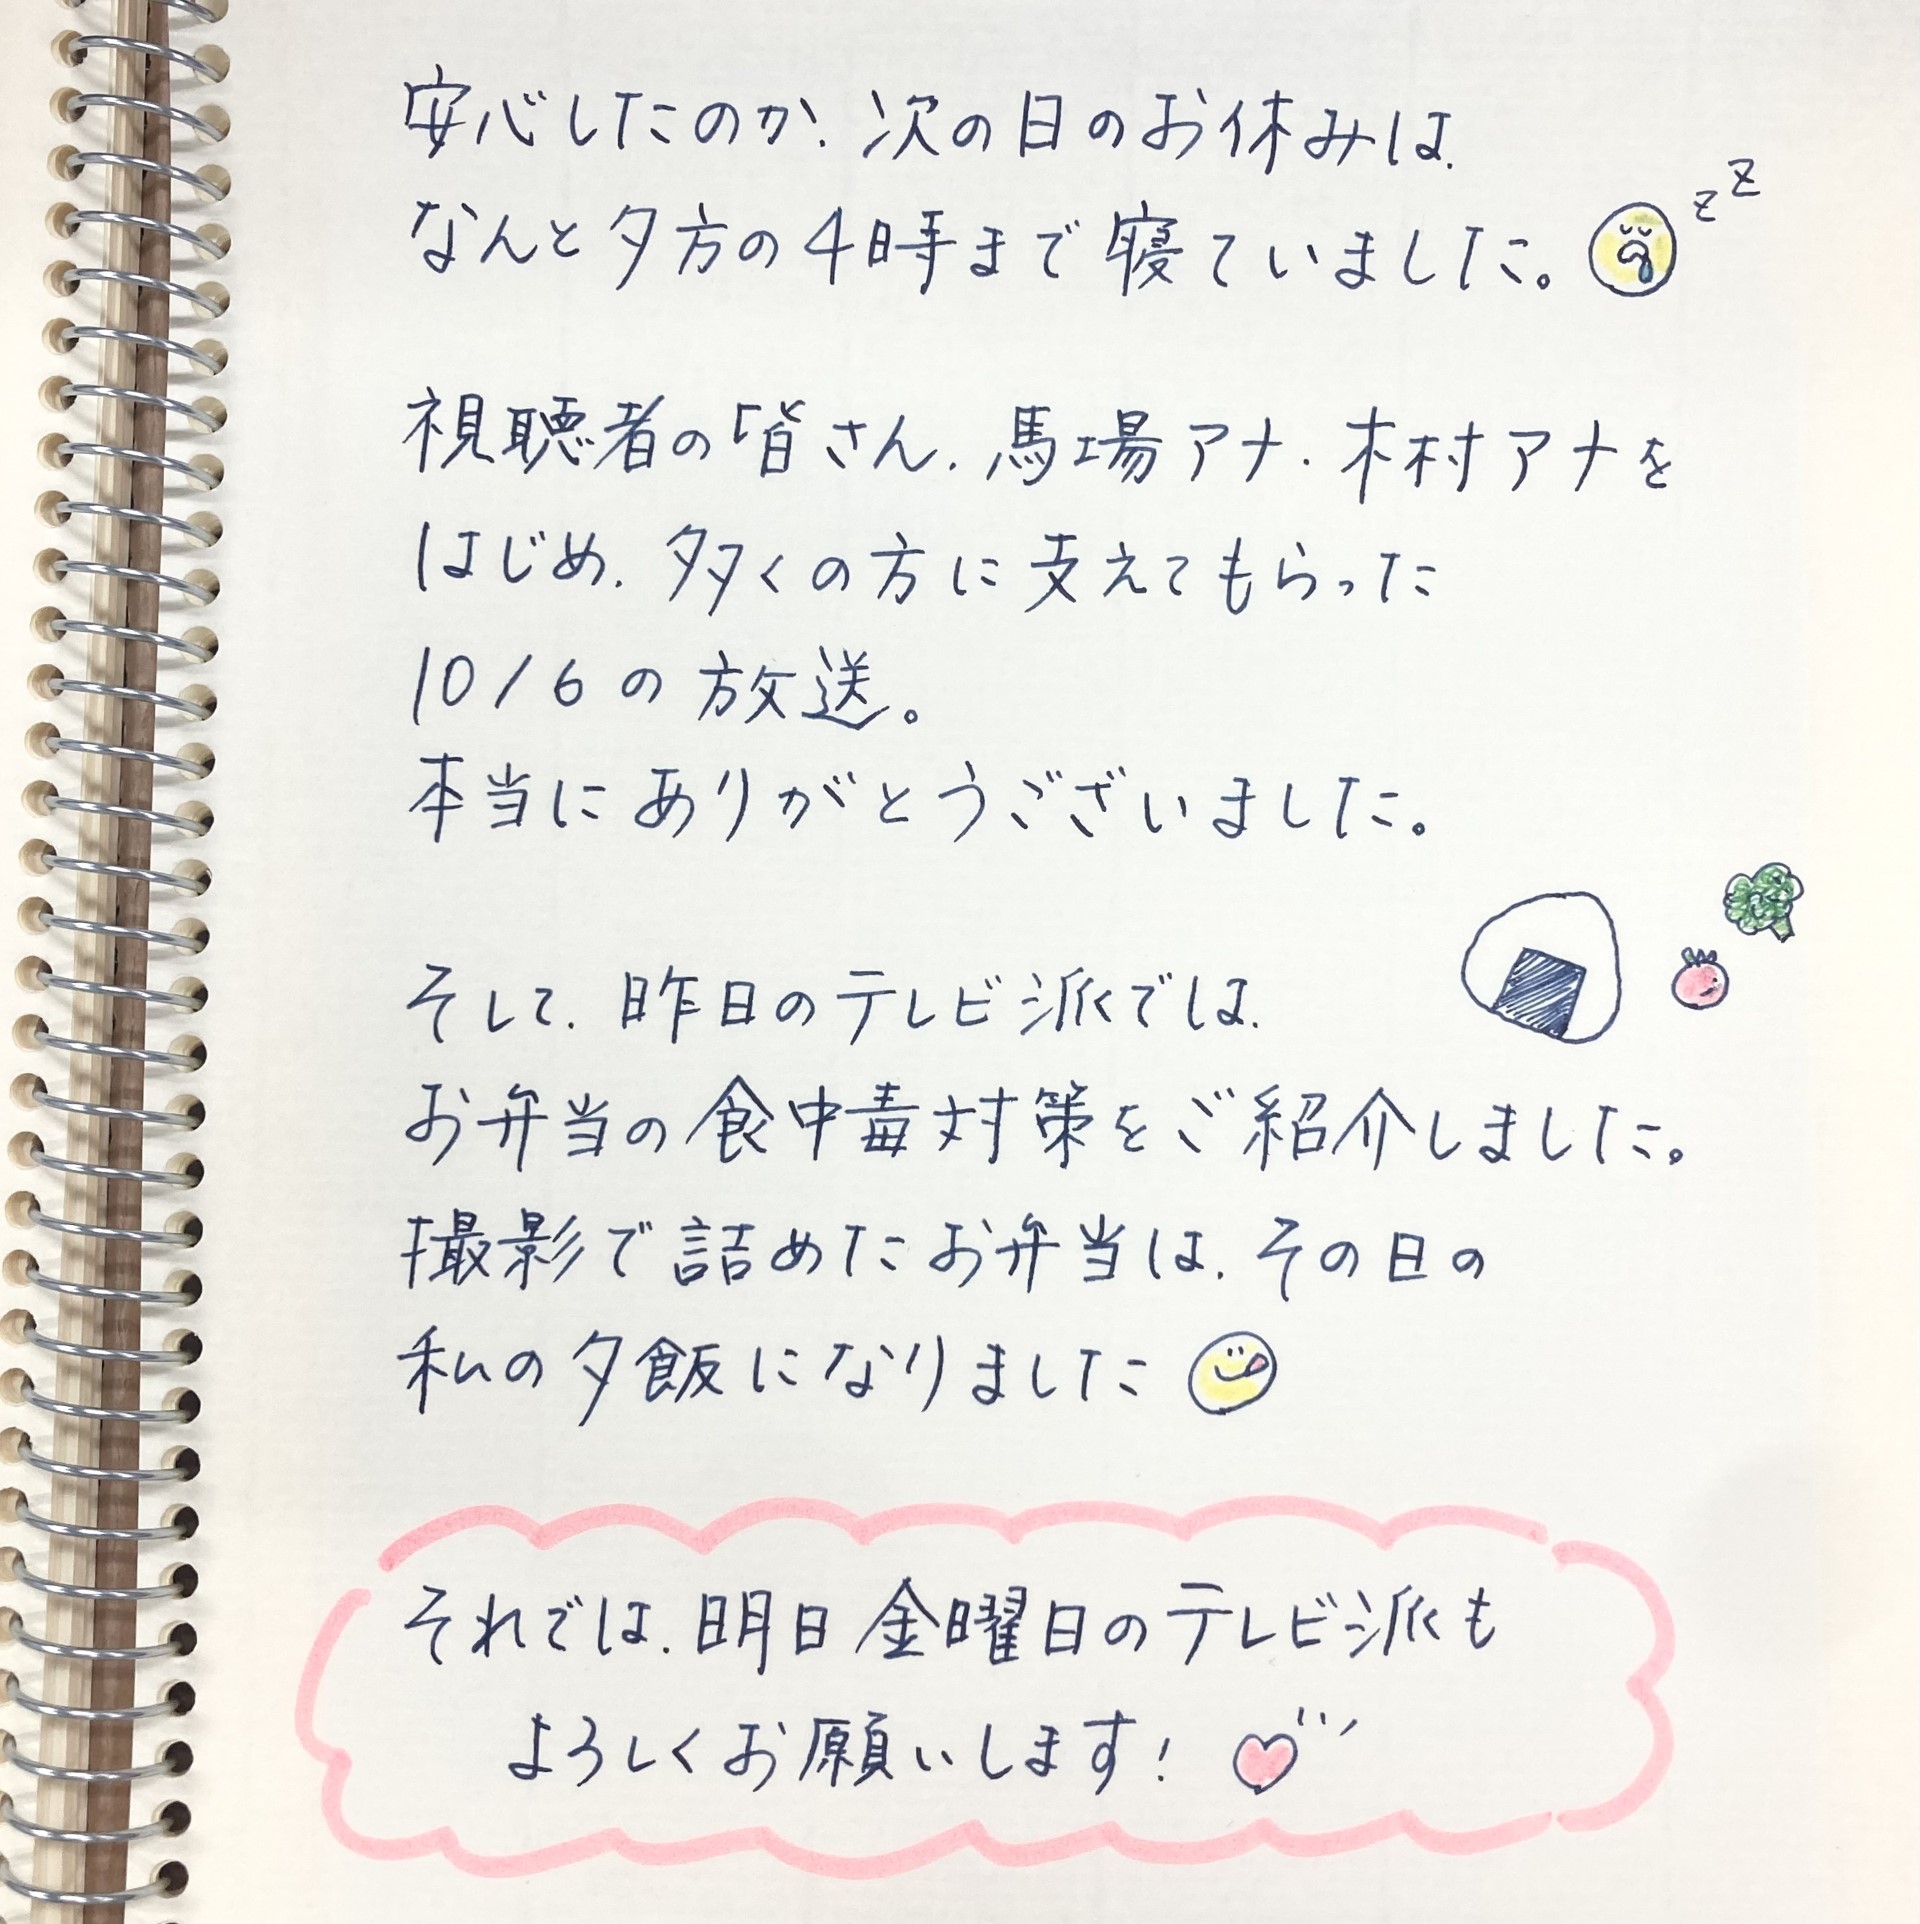 安心したのか、次の日のお休みは、
なんと夕方の4時まで寝ていました。
zz
視聴者の皆さん、馬場アナ・木村アナを
はじめ、多くの方に支えてもらった
10/6の放送。
本当にありがとうございました。
そして、昨日のテレビ派では、
お弁当の食中毒対策をご紹介しました。
撮影で詰めたお弁当は、その日の
私の夕飯になりました
それでは、明日金曜日のテレビ派も
よろしくお願いします!